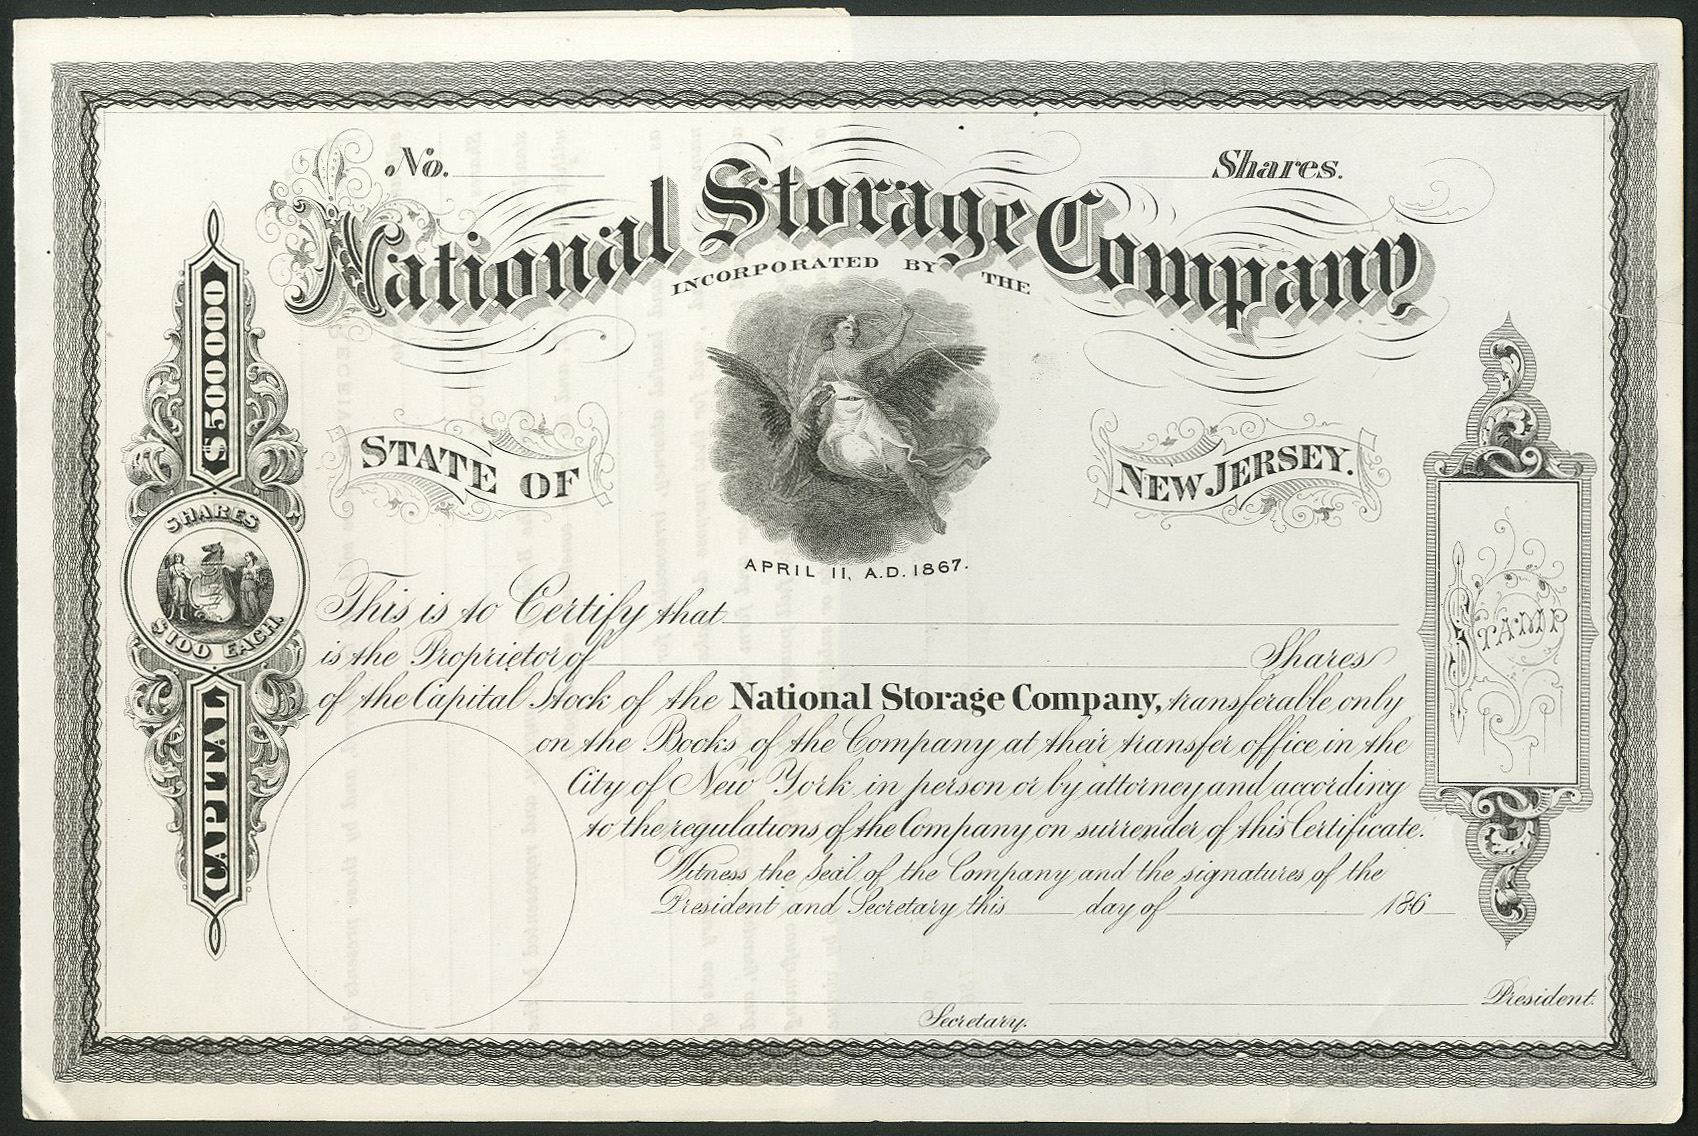 No. Shares.
National Storage Company
INCORPORATED BY THE
STATE OF NEW JERSEY.
APRIL 11, A.D. 1867.
CAPITAL $500000
SHARES
$100 EACH.
STAMP
This is to Certify that
is the Proprietor of Shares
of the Capital Stock of the National Storage Company, transferable only
on the Books of the Company at their transfer office in the
City of New York, in person or by attorney and according
to the regulations of the Company on surrender of this Certificate.
Witness the Seal of the Company and the signatures of the
President and Secretary this day of 186
President.
Secretary.